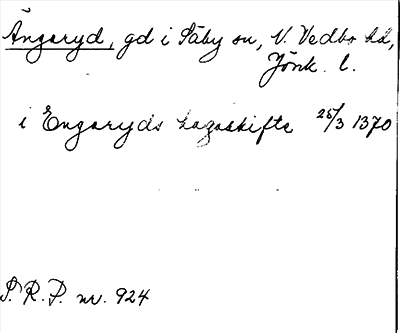 Ängaryd, gd i Säby sn, N. Vedbo hd,
Jönk. l.
i Engaryds hagaskifte 25/3 1370
S. R. P. nr. 924